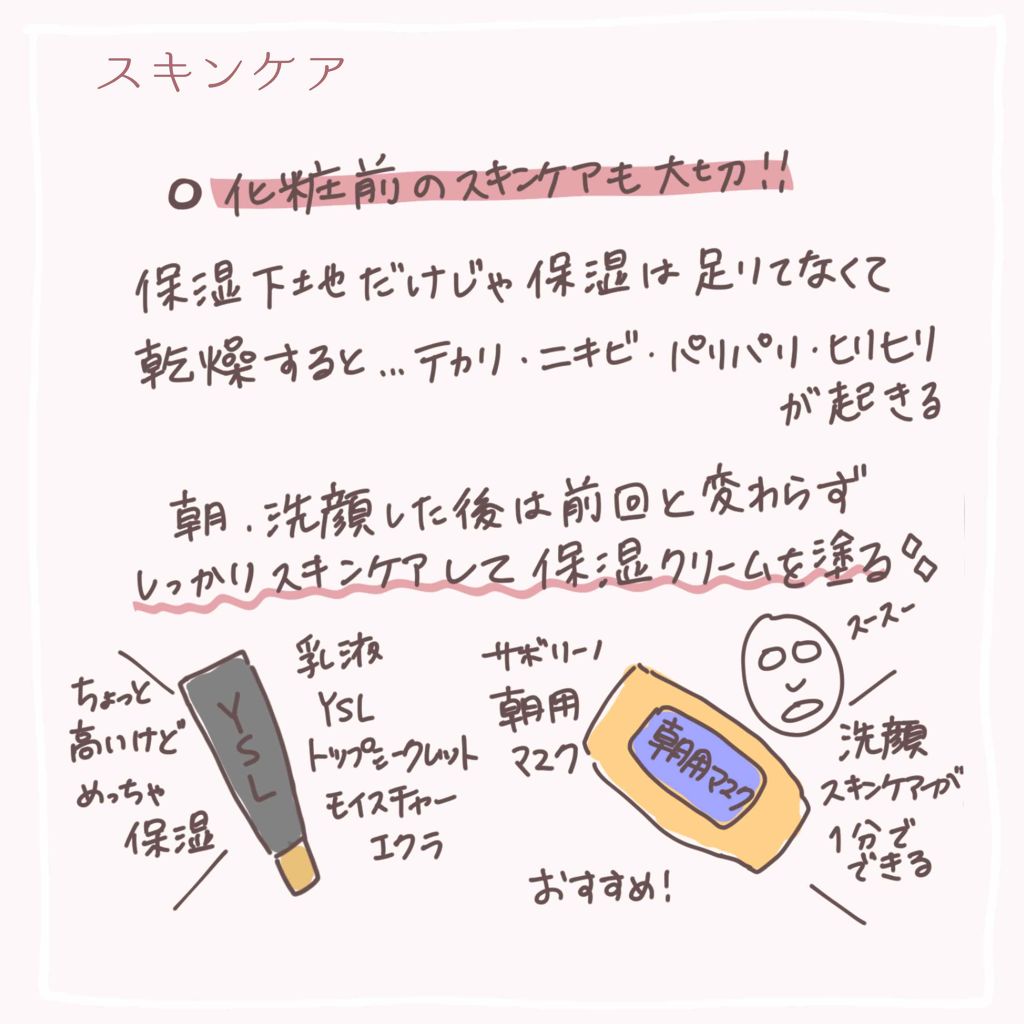 スキンケア
○ 化粧前のスキンケアも大切!!
保湿下地だけじゃ保湿は足りてなくて
乾燥すると…テカリ・ニキビ・パリパリ・ヒリヒリ
が起きる
朝.洗顔した後は前回と変わらず
しっかりスキンケアして保湿クリームを塗る
ちょっと
高いけど
めっちゃ
保湿
YSL
乳液
YSL
トップシークレット
モイスチャー
エクラ
サボリーノ
朝用
マスク
朝用マスク
おすすめ!
スースー
洗顔
スキンケアーが
1分で
できる